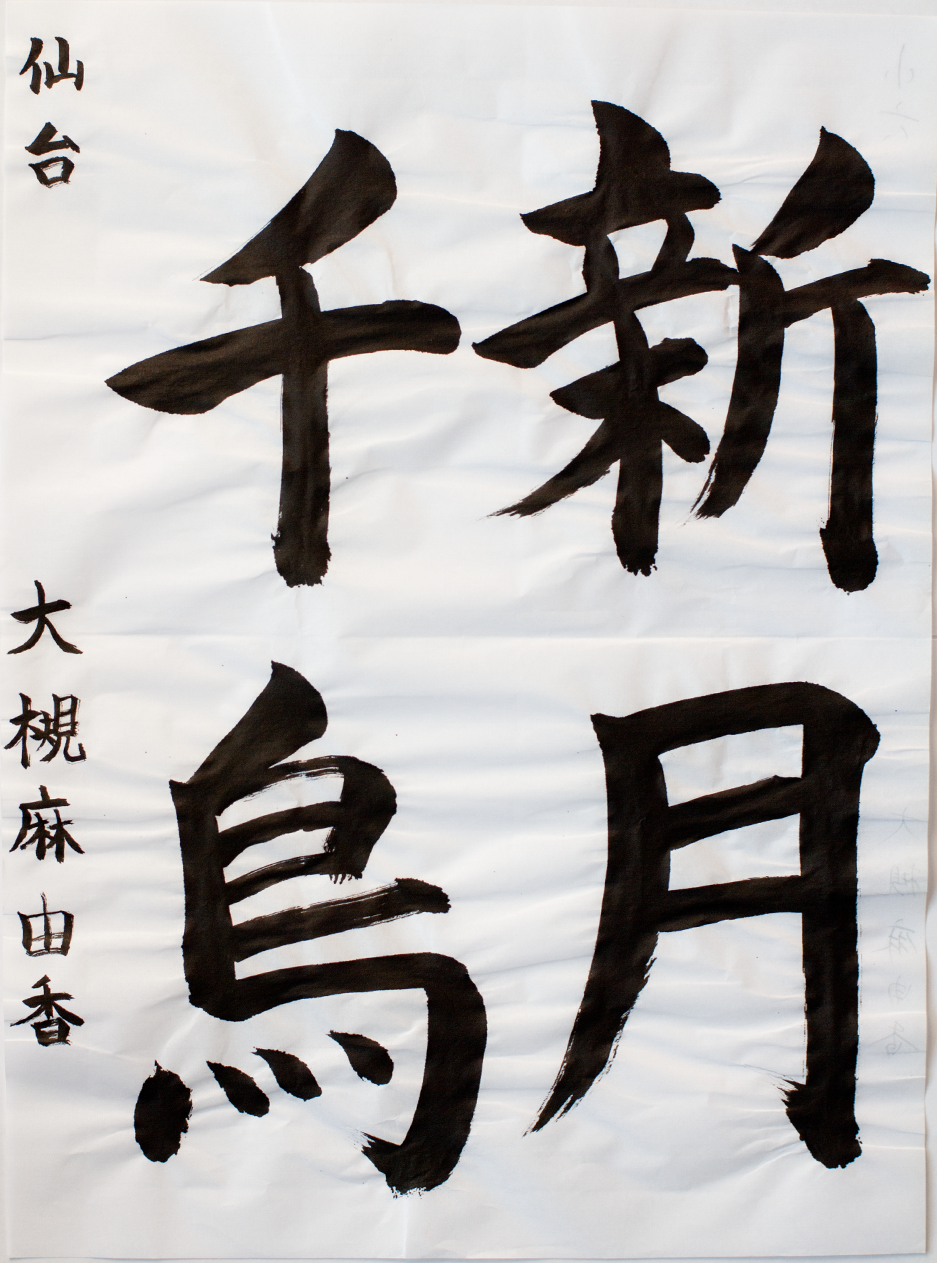 新月
千鳥
仙台 大槻麻由香